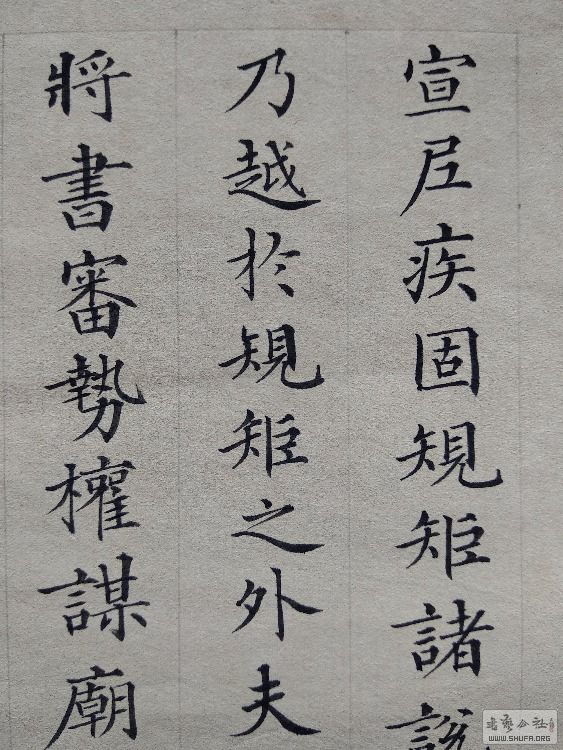 宣尼疾固規矩諸
乃越於規矩之外夫
將書審勢權謀廟
WWW.SHUFA.ORG